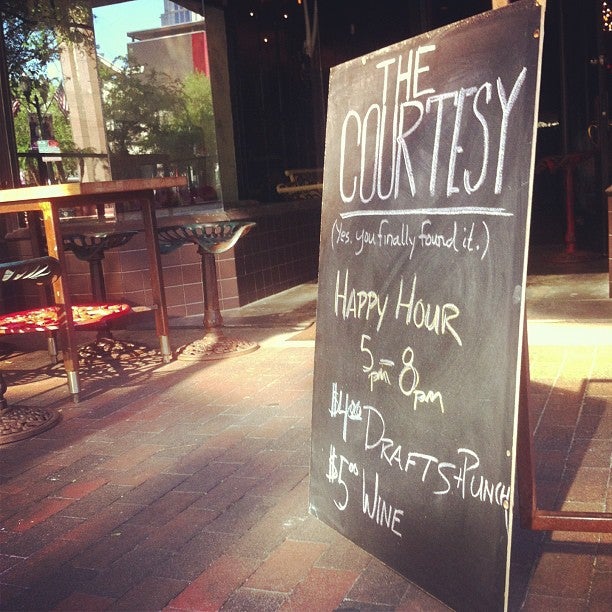 THE
COURTESY
(Yes, you finally found it.)
HAPPY HOUR
5pm - 8pm
$4.00 DRAFTS + PUNCH
$5.00 WINE